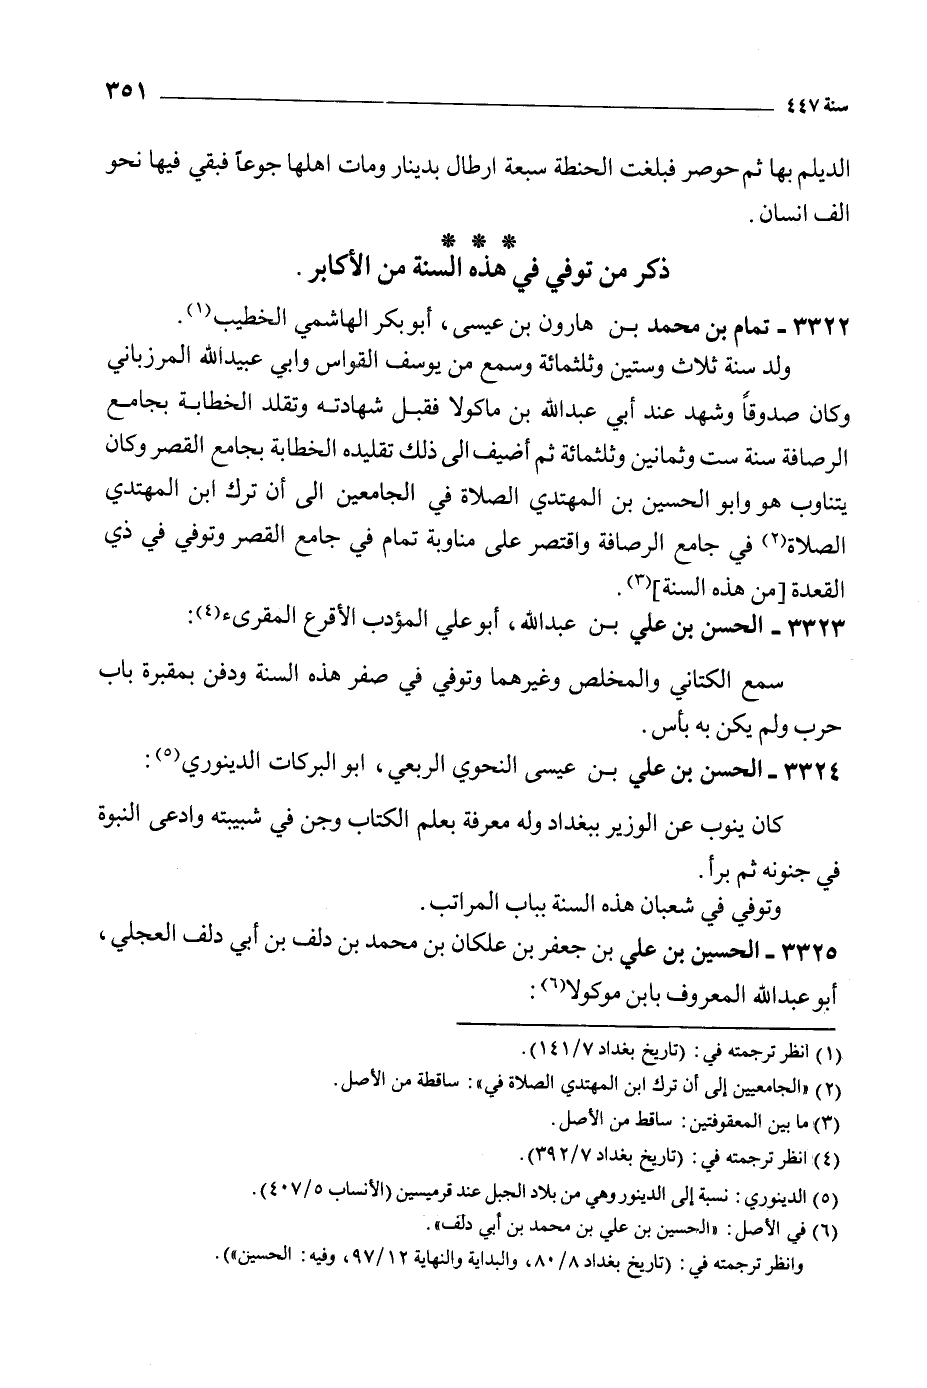 سنة ٤٤٧ ٣٥١
الديلم بها ثم حوصر فبلغت الحنطة سبعة ارطال بدينار ومات اهلها جوعاً فبقي فيها نحو
الف انسان .
* * *
ذكر من توفي في هذه السنة من الأكابر .
٣٣٢٢ ـ تمام بن محمد بن هارون بن عيسى، أبو بكر الهاشمي الخطيب(١).
ولد سنة ثلاث وستين وثلثمائة وسمع من يوسف القواس وابي عبيدالله المرزباني
وكان صدوقاً وشهد عند أبي عبدالله بن ماكولا فقبل شهادته وتقلد الخطابة بجامع
الرصافة سنة ست وثمانين وثلثمائة ثم أضيف الى ذلك تقليده الخطابة بجامع القصر وكان
يتناوب هو وابو الحسين بن المهتدي الصلاة في الجامعين الى أن ترك ابن المهتدي
الصلاة(٢) في جامع الرصافة واقتصر على مناوبة تمام في جامع القصر وتوفي في ذي
القعدة [من هذه السنة](٣).
٣٣٢٣ ـ الحسن بن علي بن عبدالله، أبو علي المؤدب الأقرع المقرىء(٤):
سمع الكتاني والمخلص وغيرهما وتوفي في صفر هذه السنة ودفن بمقبرة باب
حرب ولم يكن به بأس.
٣٣٢٤ ـ الحسن بن علي بن عيسى النحوي الربعي، ابو البركات الدينوري(٥):
كان ينوب عن الوزير ببغداد وله معرفة بعلم الكتاب وجن في شبيبته وادعى النبوة
في جنونه ثم برأ.
وتوفي في شعبان هذه السنة بباب المراتب.
٣٣٢٥ ـ الحسين بن علي بن جعفر بن علكان بن محمد بن دلف بن أبي دلف العجلي،
أبو عبدالله المعروف بابن موكولا(٦):
(١) انظر ترجمته في: (تاريخ بغداد ١٤١/٧).
(٢) «الجامعيين إلى أن ترك ابن المهتدي الصلاة في»: ساقطة من الأصل.
(٣) ما بين المعقوفتين: ساقط من الأصل.
(٤) انظر ترجمته في: (تاريخ بغداد ٣٩٢/٧).
(٥) الدينوري: نسبة إلى الدينور وهي من بلاد الجبل عند قرميسين (الأنساب ٤٠٧/٥).
(٦) في الأصل: «الحسين بن علي بن محمد بن أبي دلف».
وانظر ترجمته في: (تاريخ بغداد ٨٠/٨، والبداية والنهاية ٩٧/١٢، وفيه: الحسين»).